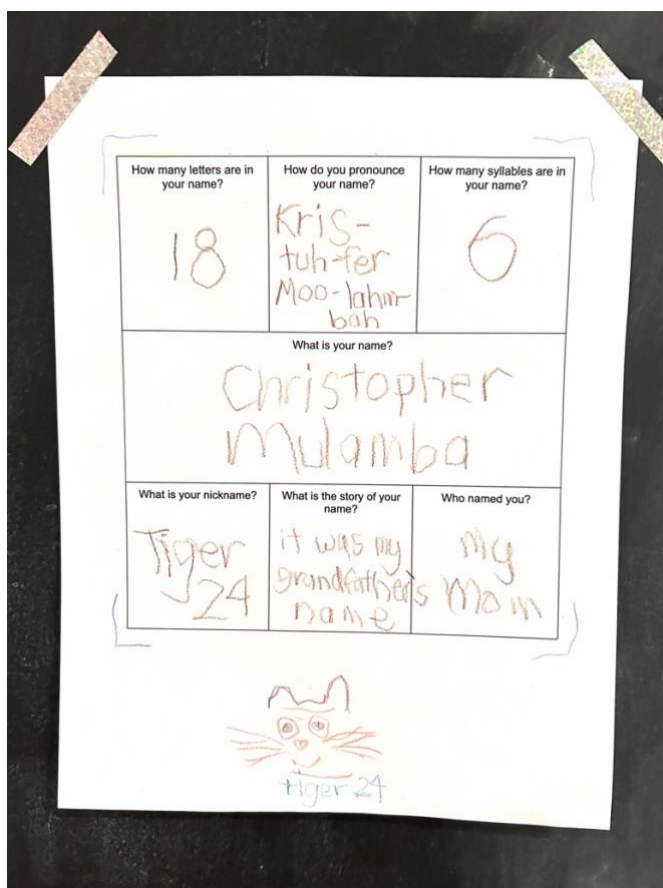 How many letters are in
your name?
18
How do you pronounce
your name?
Kris-
tuh-fer
Moo-lahm-
bah
How many syllables are in
your name?
6
What is your name?
Christopher
Mulamba
What is your nickname?
Tiger
24
What is the story of your
name?
it was my
grandfather's
name
Who named you?
My
Mom
tiger 24